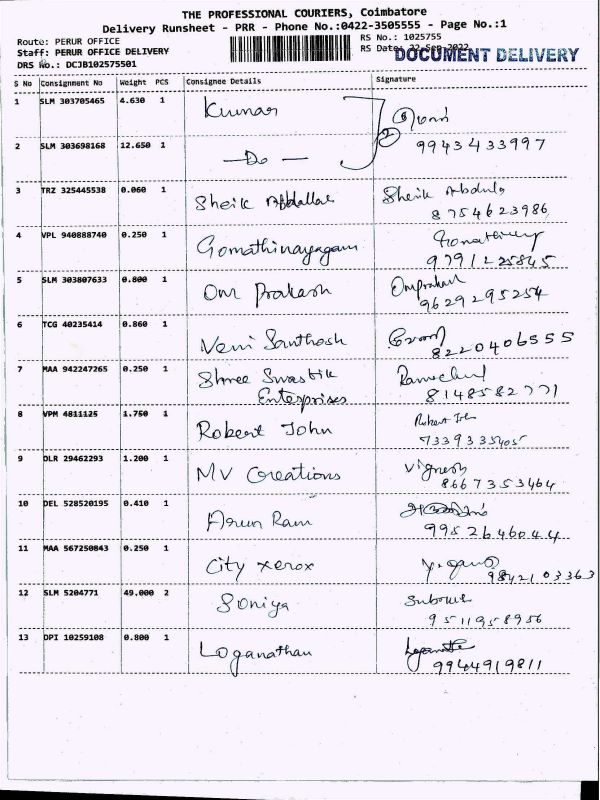 THE PROFESSIONAL COURIERS, Coimbatore
Delivery Runsheet - PRR - Phone No.:0422-3505555 - Page No.:1
Route: PERUR OFFICE
RS No.: 1025755
Staff: PERUR OFFICE DELIVERY
RS Date: 22 Sep 2022
DOCUMENT DELIVERY
DRS No.: DCJB102575501
S No Consignment No Weight PCS Consignee Details Signature
1 SLM 303705465 4.630 1 Kumar
2 SLM 303698168 12.650 1 —Do— 2 9943433997
3 TRZ 325445538 0.060 1 Sheik Abdullah Sheik Abdul
8754623986
4 VPL 940888740 0.250 1 Gomathinayagam
9791225845
5 SLM 303807633 0.800 1 Om Prakash Omprakash
9629295254
6 TCG 40235414 0.860 1 Veni Santhosh
8220406555
7 MAA 942247265 0.250 1 Shree Swastik
Enterprises 8148582771
8 VPM 4811125 1.750 1 Robert John Robert
7339335405
9 DLR 29462293 1.200 1 MV Creations Vignesh
8667353464
10 DEL 528520195 0.410 1 Arun Ram
9952646044
11 MAA 567250843 0.250 1 City Xerox
9842103363
12 SLM 5204771 49.000 2 Soniya
9511958956
13 DPI 10259108 0.800 1 Loganathan
9944919811